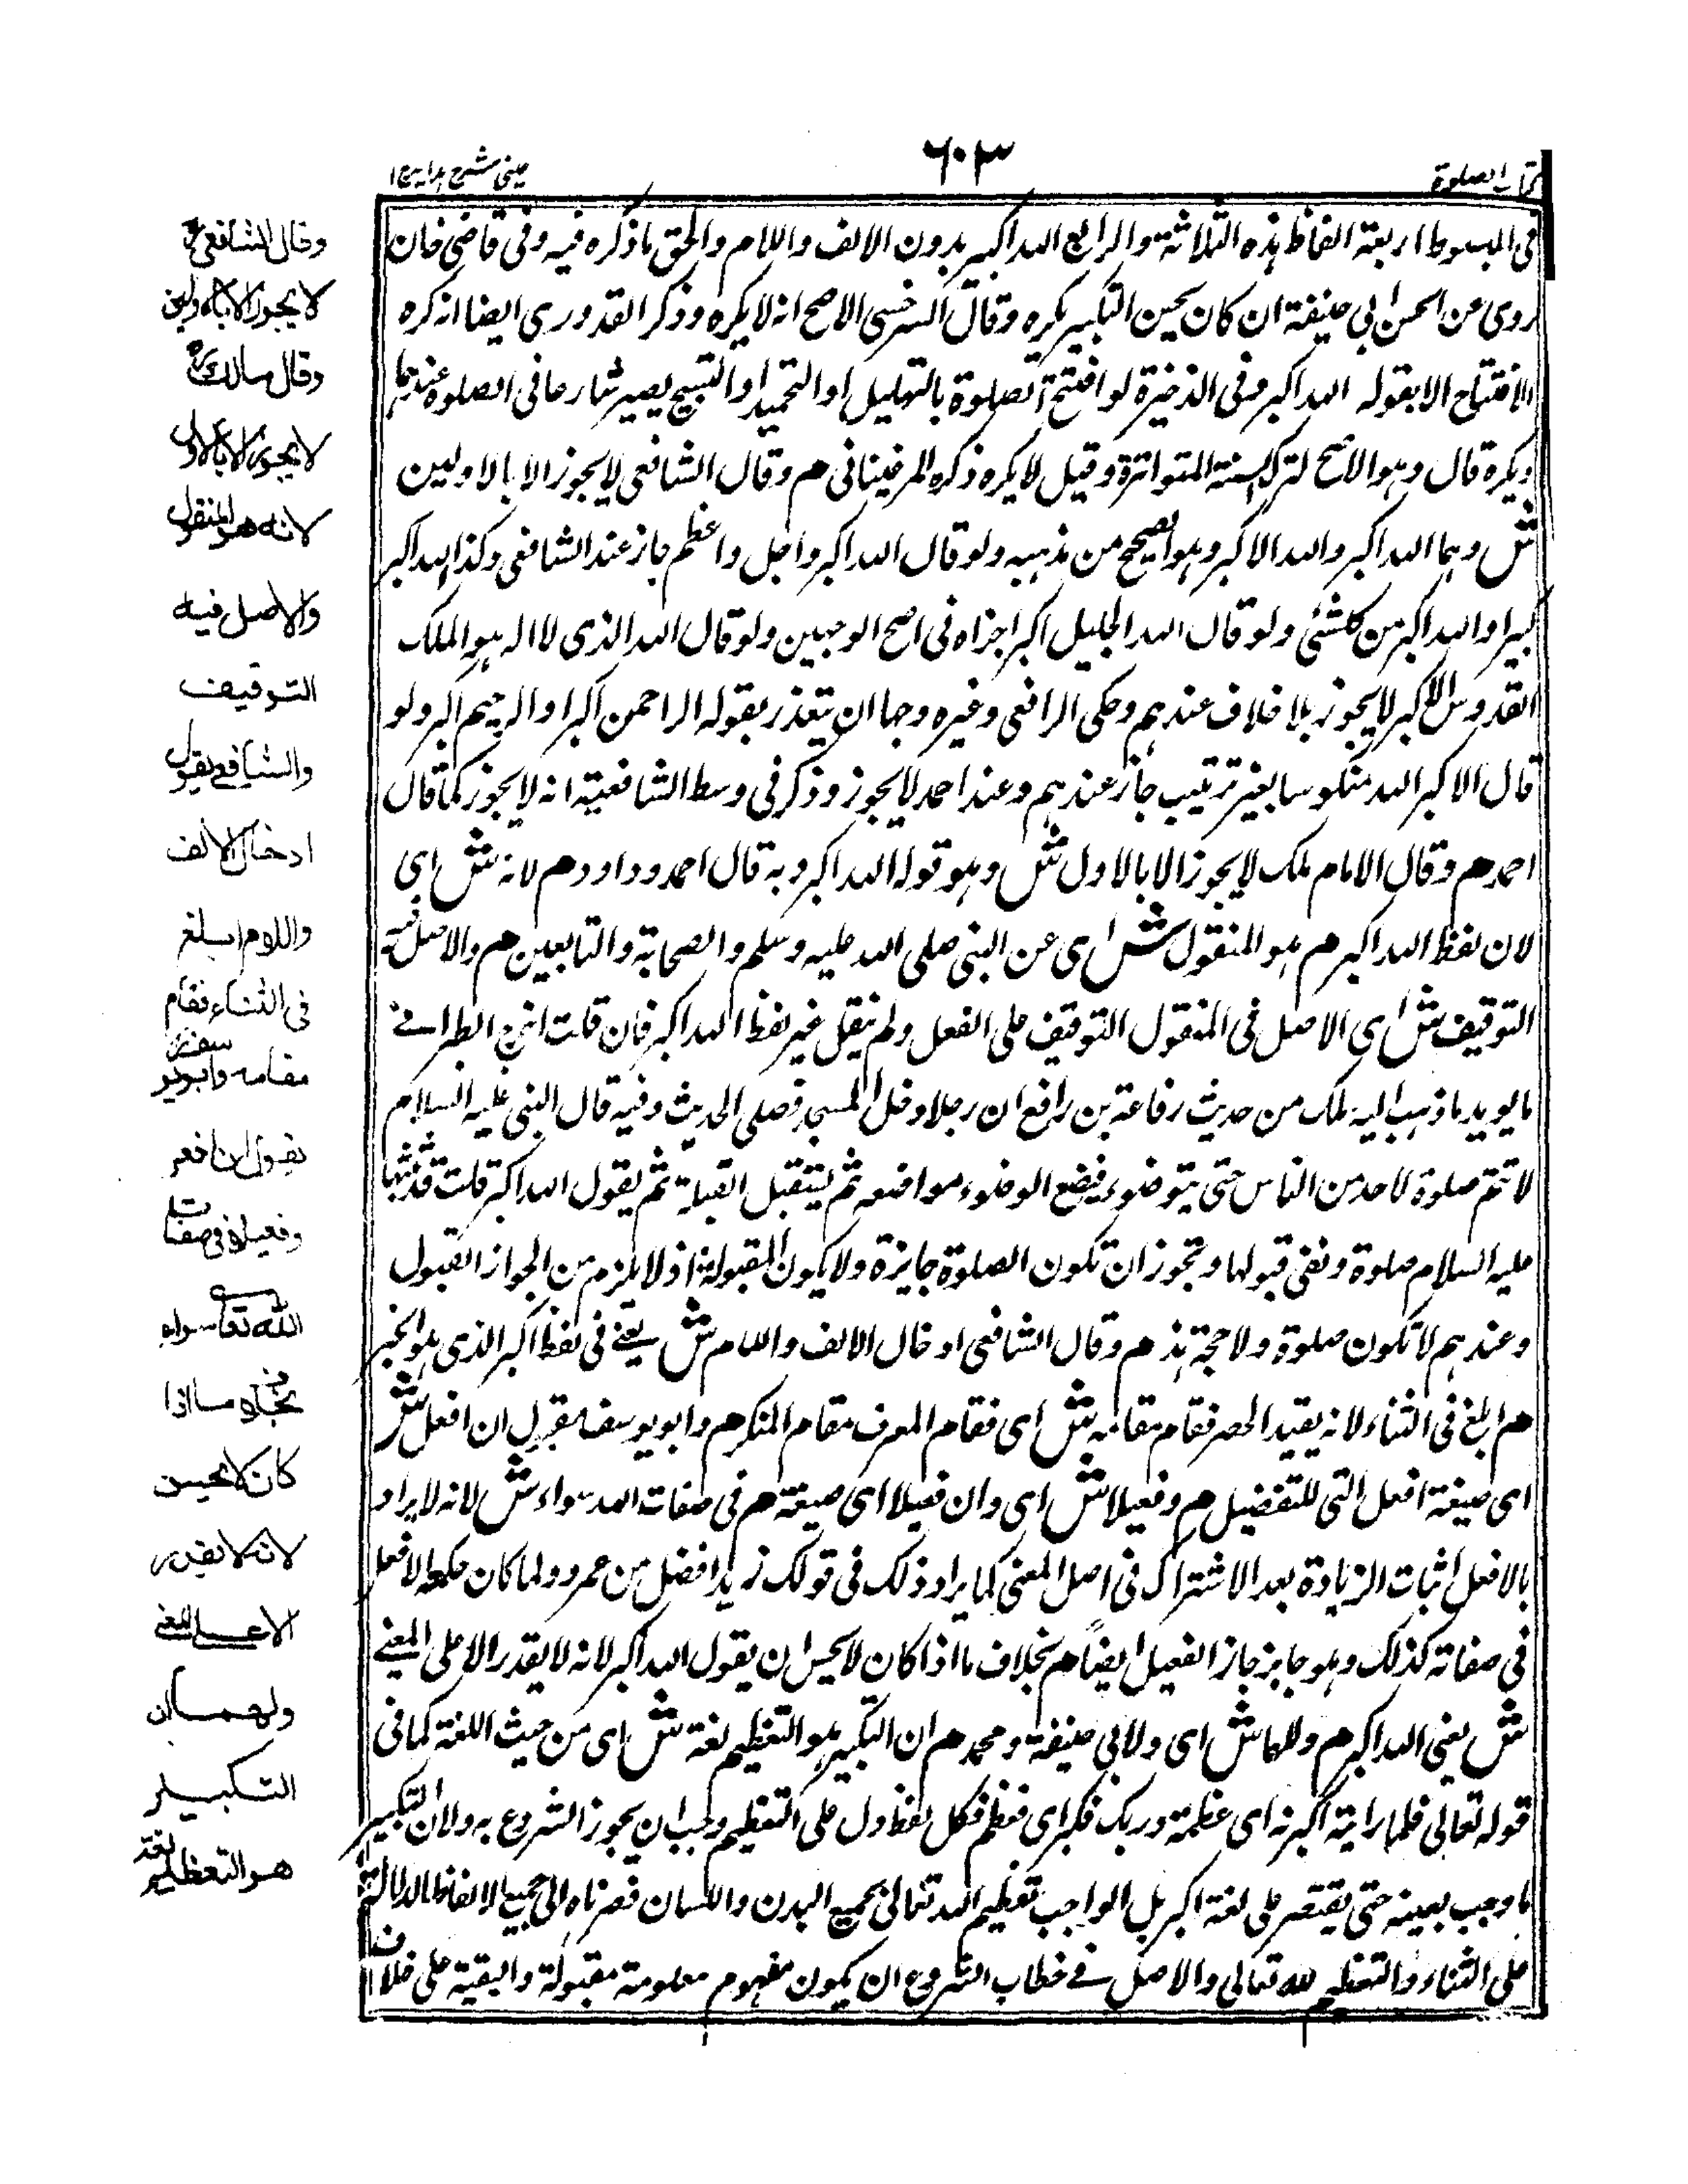 كتاب الصلوة
٦٠٣
عينى شرح هدايه ج١
فى المبسوط اربعة الفاظ هذه الثلاثة والرابع الله اكبير بدون الالف واللام والحق ما ذكره فيه وفى قاضى خان
روى عن الحسن ابى حنيفة ان كان يحسن التكبير يكره وقال السرخسى الاصح انه لا يكره وذكر القدورى ايضا انه كره
الافتتاح الا بقوله الله اكبر وفى الذخيرة لو افتتح الصلوة بالتهليل او التحميد او التسبيح يصير شارعا فى الصلوة عندهما
ويكره قال وهو الاصح لترك السنة المتواترة وقيل لا يكره ذكره المرغينانى م وقال الشافعى لا يجوز الا بالاولين
ش وهما الله اكبر والله الاكبر وهو الصحيح من مذهبه ولو قال الله اكبر واجل واعظم جاز عند الشافعى وكذا الله اكبر
كبيرا والله اكبر من كل شئ ولو قال الله الجليل اكبر اجزاه فى اصح الوجهين ولو قال الله الذى لا اله هو الملك
القدوس الاكبر لا يجوز بلا خلاف عندهم وحكى الرافعى وغيره وجها ان يتعذر بقوله الرحمن اكبر او الرحيم اكبر ولو
قال الاكبر الله منكوسا بغير ترتيب جاز عندهم وعند احمد لا يجوز وذكر فى وسط الشافعية انه لا يجوز كما قال
احمد م وقال الامام ملك لا يجوز الا بالاول ش وهو قوله الله اكبر وبه قال احمد وداود م لانه ش اى
لان لفظ الله اكبر م هو المنقول ش اى عن النبى صلى الله عليه وسلم والصحابة والتابعين م والاصل فيه
التوقيف ش اى الاصل فى المنقول التوقيف على الفعل ولم ينقل غير لفظ الله اكبر فان قلت اخرج الطبرانى
ما يويد ما ذهب اليه ملك من حديث رفاعة بن رافع ان رجلا دخل المسجد فصلى الحديث وفيه قال النبى عليه السلام
لا تتم صلوة لاحد من الناس حتى يتوضوء فيضع الوضوء مواضعه ثم يستقبل القبلة ثم يقول الله اكبر قلت قد اثبتها
عليه السلام صلوة ونفى قبولها وتجوز ان تكون الصلوة جايزة ولا يكون المقبولة اذ لا يلزم من الجواز القبول
وعندهم لا تكون صلوة ولا حجة بذ م وقال الشافعى ادخال الالف واللام ش يعنى فى لفظ اكبر الذى هو الخبر
م ابلغ فى الثناء لانه يفيد الحصر فقام مقامه ش اى فقام المعرف مقام المنكر م وابو يوسف يقول ان افعل ش
اى صيغة افعل التى للتفضيل م وفعيلا ش اى وان فعيلا اى صيغة م فى صفات الله سواء ش لانه لا يراد
بالافعل اثبات الزيادة بعد الاشتراك فى اصل المعنى كما يراد ذلك فى قولك زيد افضل من عمرو ولما كان حكمه الافعل
فى صفاته كذلك وهو جايز جاز الفعيل ايضا م بخلاف ما اذا كان لا يحسن ان يقول الله اكبر لانه لا يقدر الا على المعنى
ش يعنى الله اكبر م ولهما ش اى ولابى حنيفة ومحمد م ان التكبير هو التعظيم لغة ش اى من حيث اللغة كما فى
قوله تعالى فلما راينه اكبرنه اى عظمنه وربك فكبر اى فعظم فكل لفظ دل على التعظيم وجب ان يجوز الشروع به ولان التكبير
ما وجب بعينه حتى يقتصر على لغة اكبر بل الواجب تعظيم الله تعالى بجميع البدن واللسان فصرناه الى جميع الالفاظ الدالة
على الثناء والتعظيم لله تعالى والاصل فى خطاب الشروع ان يكون مفهوم معلومة مقبولة والبقية على خلاف
وقال الشافعى
لا يجوز الا بالاولين
وقال مالك
لا يجوز الا بالاول
لانه هو المنقول
والاصل فيه
التوقيف
والشافعى يقول
ادخال الالف
واللام ابلغ
فى الثناء فقام
مقامه وابو يوسف
يقول ان افعل
وفعيلا فى صفات
الله تعا سواء
بخلاف ما اذا
كان لا يحسن
لانه لا يقدر
الا على المعنى
ولهما ان
التكبير
هو التعظيم لغة